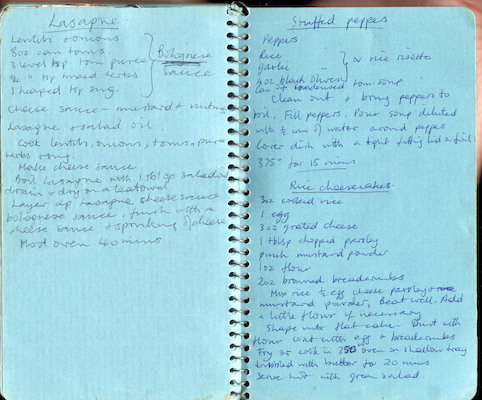 Lasagne
Lentils + onions
8oz can toms.
3 level tsp. tom puree
½ " tsp mixed herbs
1 heaped tsp sug.
Bolognese
Sauce
Cheese sauce - mustard + nutmeg
Lasagne + salad oil
Cook lentils, onions, toms, puree
herbs + sug.
Make cheese sauce
Boil lasagne with 1 tbsp salad oil
drain + dry on a teatowel
Layer up lasagne cheese sauce
bolognese sauce, finish with a
cheese sauce + sprinkling of cheese
Mod oven 40 mins
Stuffed peppers
Peppers
Rice
garlic
4oz black olives
or rice risotto
can of condensed tom. soup
Clean out + bring peppers to
boil. Fill peppers. Pour soup diluted
with ½ can of water around peppers
Cover dish with a tight fitting lid or foil
375° for 15 mins
Rice cheesecakes.
3oz cooked rice
1 egg
3oz grated cheese
1 tblsp chopped parsley
pinch mustard powder
1oz flour
2oz browned breadcrumbs
Mix rice ½ egg cheese parsley +
mustard powder, Beat well. Add
a little flour if necessary
Shape into flat cake. Dust with
flour coat with egg + breadcrumbs
Fry or cook in 350 oven on shallow tray
with butter for 20 mins
Serve hot with green salad.